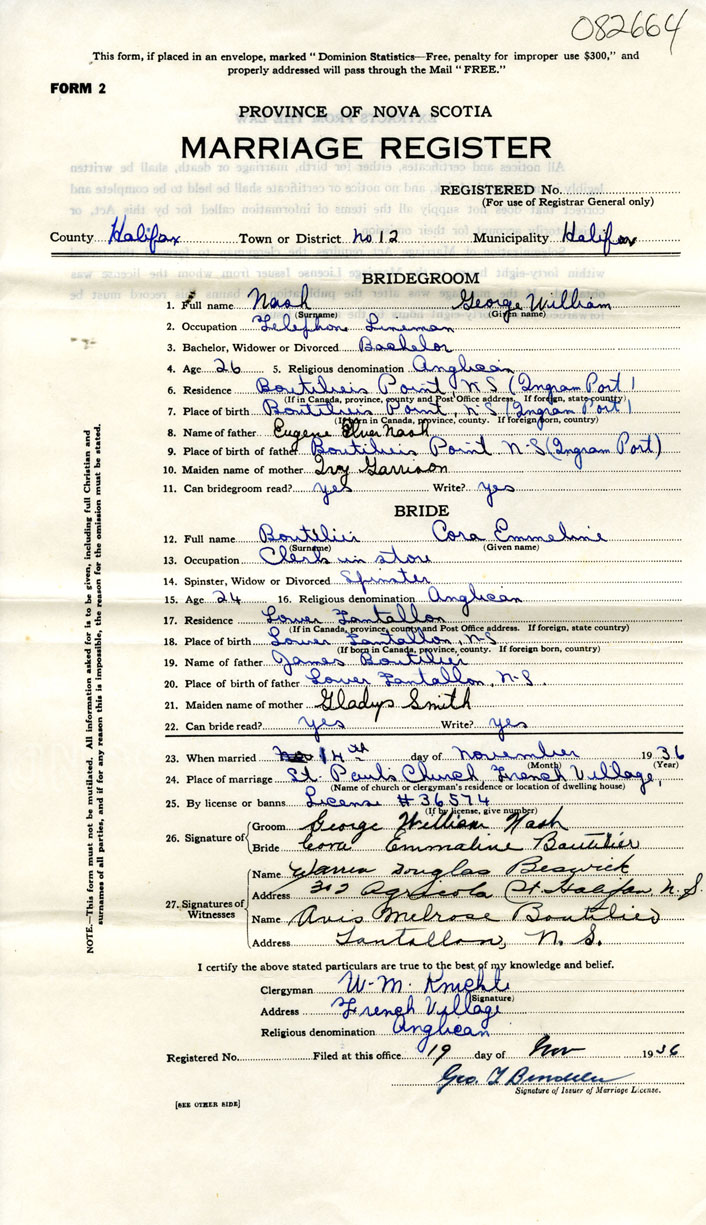 082664
This form, if placed in an envelope, marked "Dominion Statistics—Free, penalty for improper use $300," and
properly addressed will pass through the Mail "FREE."
FORM 2
PROVINCE OF NOVA SCOTIA
MARRIAGE REGISTER
REGISTERED No.
(For use of Registrar General only)
County Halifax Town or District No 12 Municipality Halifax
BRIDEGROOM
1. Full name Nash George William
(Surname) (Given name)
2. Occupation Telephone Lineman
3. Bachelor, Widower or Divorced Bachelor
4. Age 26 5. Religious denomination Anglican
6. Residence Boutiliers Point N.S (Ingram Port)
(If in Canada, province, county and Post Office address. If foreign, state country)
7. Place of birth Boutiliers Point, N.S (Ingram Port)
(If born in Canada, province, county. If foreign born, country)
8. Name of father Eugene Nash
9. Place of birth of father Boutiliers Point N.S (Ingram Port)
10. Maiden name of mother Ivy Garrison
11. Can bridegroom read? yes Write? yes
BRIDE
12. Full name Boutilier Cora Emmeline
(Surname) (Given name)
13. Occupation Clerk in store
14. Spinster, Widow or Divorced Spinster
15. Age 24 16. Religious denomination Anglican
17. Residence Lower Tantallon
(If in Canada, province, county and Post Office address. If foreign, state country)
18. Place of birth Lower Tantallon, N.S
(If born in Canada, province, county. If foreign born, country)
19. Name of father James Boutilier
20. Place of birth of father Lower Tantallon, N.S.
21. Maiden name of mother Gladys Smith
22. Can bride read? yes Write? yes
23. When married 14th day of November 1936
(Month) (Year)
24. Place of marriage St. Paul's Church, French Village,
(Name of church or clergyman's residence or location of dwelling house)
25. By license or banns License #36574
(If by license, give number)
26. Signature of Groom George William Nash
Bride Cora Emmaline Boutilier
27. Signatures of Witnesses Name Warren Douglas Beswick
Address 312 Agricola St. Halifax N.S.
Name Avis Melrose Boutilier
Address Tantallon, N.S.
I certify the above stated particulars are true to the best of my knowledge and belief.
Clergyman W. M. Knight
(Signature)
Address French Village
Religious denomination Anglican
Registered No. Filed at this office 19 day of Nov 1936
Geo. T
Signature of Issuer of Marriage License.
[SEE OTHER SIDE]
NOTE.—This form must not be mutilated. All information asked for is to be given, including full Christian and
surnames of all parties, and if for any reason this is impossible, the reason for the omission must be stated.